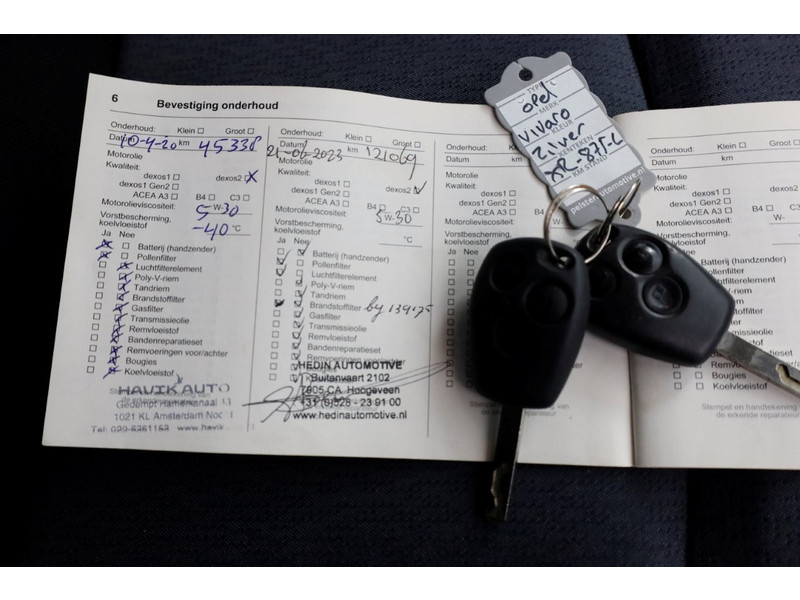 6 Bevestiging onderhoud
Onderhoud: Klein □ Groot □
Datum 10-4-20 km 45338
Motorolie
Kwaliteit:
dexos1 □ dexos2 X
dexos1 Gen2 □
ACEA A3 □ B4 □ C3 □
Motorolieviscositeit: 5 W-30
Vorstbescherming,
koelvloeistof -40 °C
Ja Nee
Batterij (handzender)
Pollenfilter
Luchtfilterelement
Poly-V-riem
Tandriem
Brandstoffilter
Gasfilter
Transmissieolie
Remvloeistof
Bandenreparatieset
Remvoeringen voor/achter
Bougies
Koelvloeistof
HAVIK AUTO
1021 KL Amsterdam
Onderhoud: Klein □ Groot □
Datum 21-06-2023 km 121069
Motorolie
Kwaliteit:
dexos1 □ dexos2
dexos1 Gen2 □
ACEA A3 □ B4 □ C3 □
Motorolieviscositeit: 5 W-30
Vorstbescherming,
koelvloeistof °C
Ja Nee
Batterij (handzender)
Pollenfilter
Luchtfilterelement
Poly-V-riem
Tandriem
Brandstoffilter
Gasfilter
Transmissieolie
Remvloeistof
Bandenreparatieset
Remvoeringen voor/achter
HEDIN AUTOMOTIVE
Buitenvaart 2102
7905 CA Hoogeveen
+31 (0)528 - 23 91 00
www.hedinautomotive.nl
Onderhoud: Klein □
Datum km
Motorolie
Kwaliteit:
dexos1 □
dexos1 Gen2 □
ACEA A3 □
Motorolieviscositeit:
Vorstbescherming,
koelvloeistof
Ja Nee
TYPE
Opel
MERK
Vivaro
KLEUR
Zilver
KENTEKEN
XR-875-L
KM STAND
pelsterautomotive.nl
Onderhoud: Klein □ Groot □
Datum km
Motorolie
Kwaliteit:
dexos1 □ dexos2 □
dexos1 Gen2 □
ACEA A3 □ B4 □ C3 □
Motorolieviscositeit: W-
Vorstbescherming,
koelvloeistof °C
Ja Nee
Batterij (handzender)
Pollenfilter
Luchtfilterelement
Stempel en handtekening
de erkende reparateur